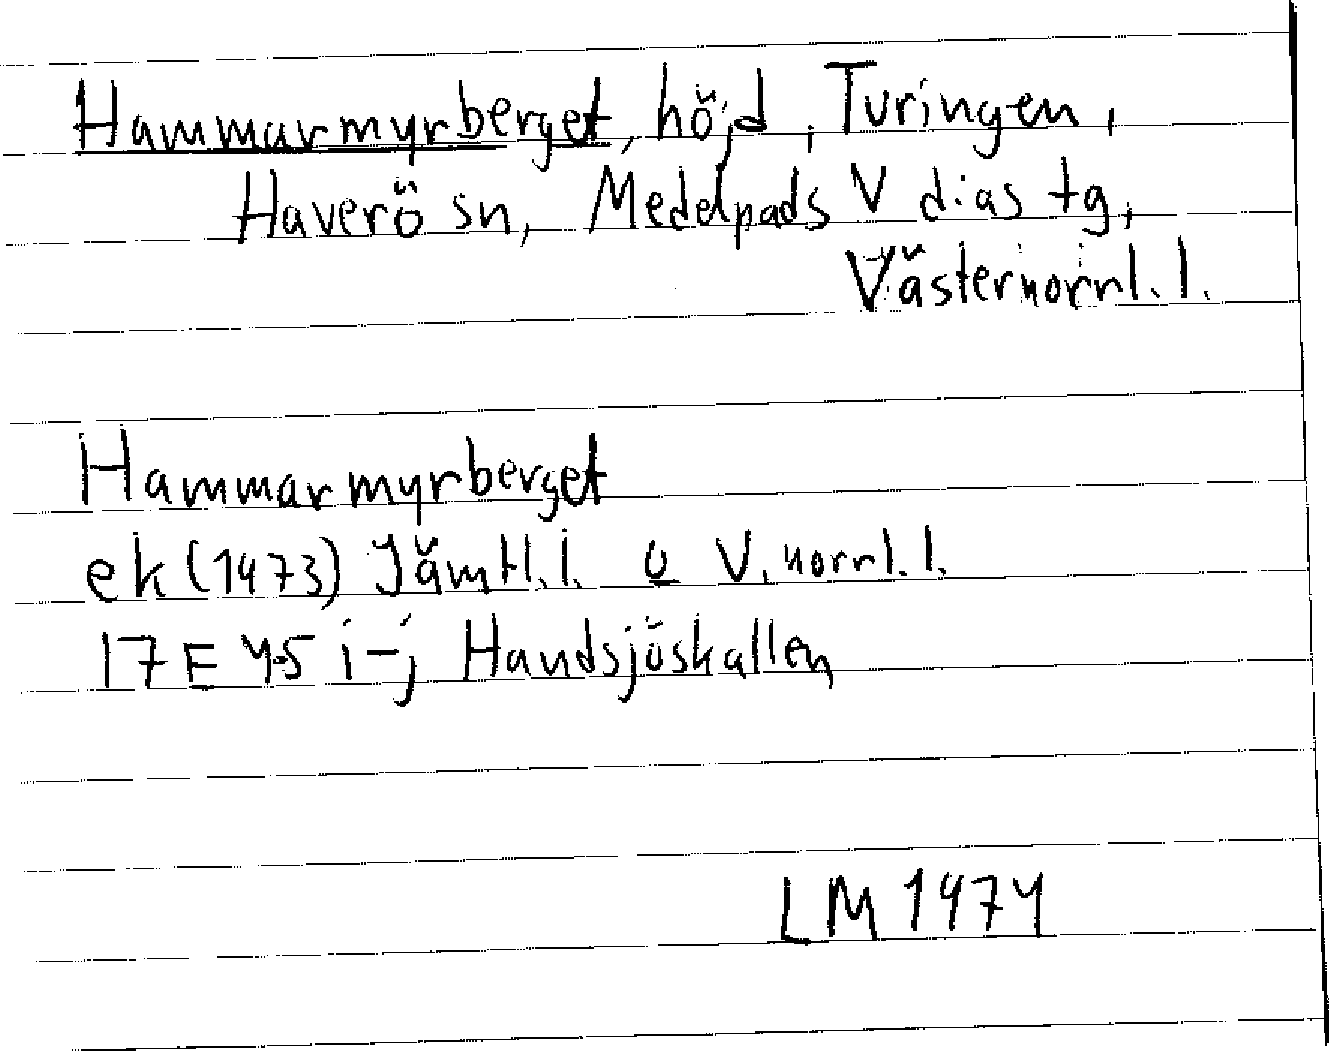 Hammarmyrberget, höjd, Turingen,
Haverö sn, Medelpads V d:as tg,
Västernorrl. l.
Hammarmyrberget
ek (1973) Jämtl. l. o V. norrl. l.
17 E 4-5 i-j Handsjöskallen
LM 1974